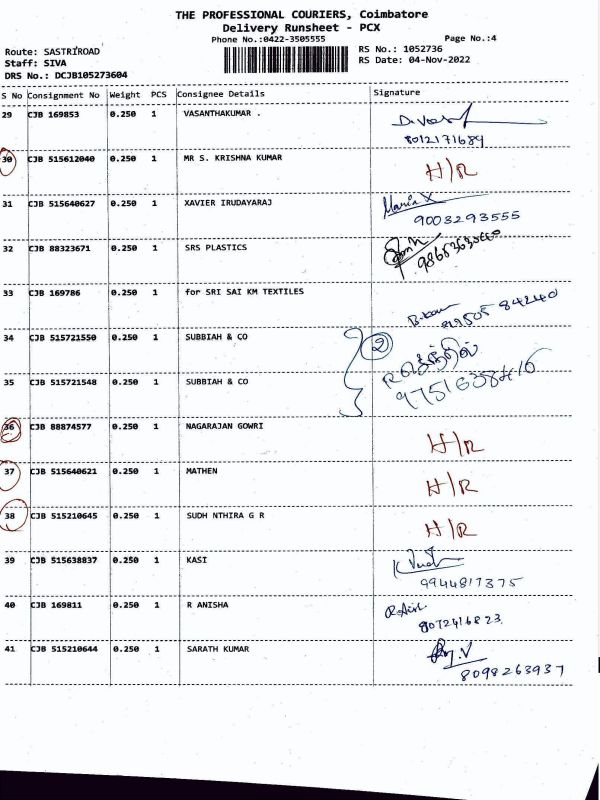 THE PROFESSIONAL COURIERS, Coimbatore
Delivery Runsheet - PCX
Phone No.:0422-3505555 Page No.:4
Route: SASTRIROAD RS No.: 1052736
Staff: SIVA RS Date: 04-Nov-2022
DRS No.: DCJB105273604
S No Consignment No Weight PCS Consignee Details Signature
29 CJB 169853 0.250 1 VASANTHAKUMAR .
8012171689
30 CJB 515612040 0.250 1 MR S. KRISHNA KUMAR H/R
31 CJB 515640627 0.250 1 XAVIER IRUDAYARAJ Maria X
9003293555
32 CJB 88323671 0.250 1 SRS PLASTICS
33 CJB 169786 0.250 1 for SRI SAI KM TEXTILES
34 CJB 515721550 0.250 1 SUBBIAH & CO 2
R செந்தில்
35 CJB 515721548 0.250 1 SUBBIAH & CO 9751638416
36 CJB 88874577 0.250 1 NAGARAJAN GOWRI H/R
37 CJB 515640621 0.250 1 MATHEN H/R
38 CJB 515210645 0.250 1 SUDH NTHIRA G R H/R
39 CJB 515638837 0.250 1 KASI
9944817375
40 CJB 169811 0.250 1 R ANISHA
8072416823
41 CJB 515210644 0.250 1 SARATH KUMAR
8098263937